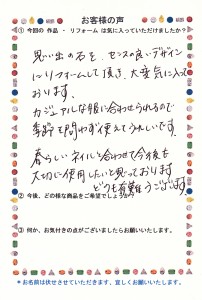 お客様の声
① 今回の 作品 ・ リフォーム は気に入っていただけましたか？
思い出の石を、センスの良いデザイン
にリフォームして頂き、大変気に入って
おります。
カジュアルな服に合わせられるので
季節を問わず使えてうれしいです。
春らしいネイルと合わせて今後も
大切に使用したいと思っております
どうも有難うございます
② 今後、どの様な商品をご希望でしょうか？
③ 何か、お気付きの点がございましたらお願いいたします。
＊お名前は伏せさせていただきます、宜しくお願いします。